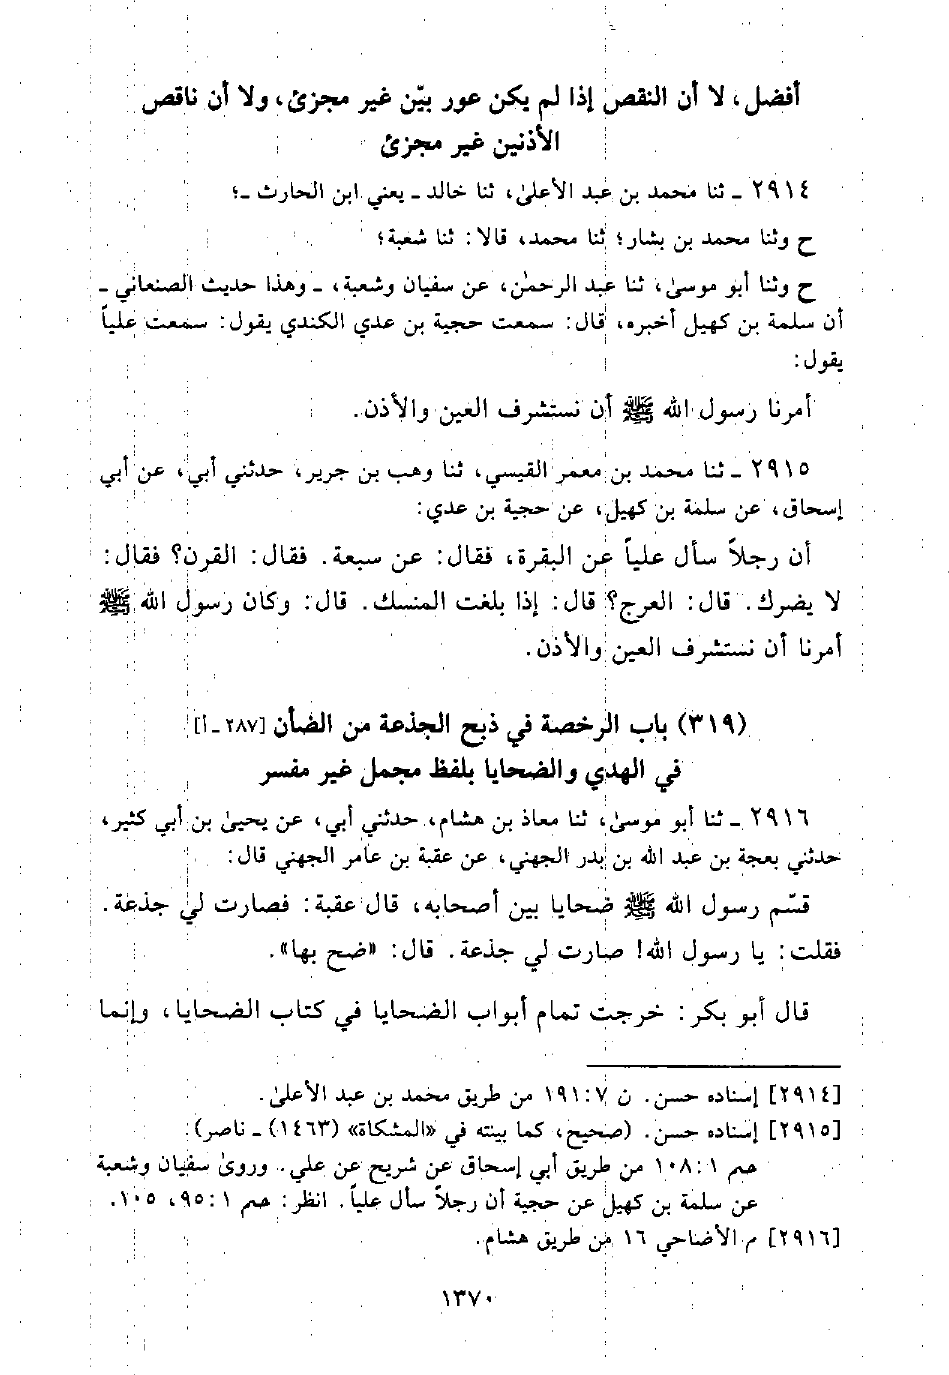 أفضل، لا أن النقص إذا لم يكن عور بيّن غير مجزئ، ولا أن ناقص
الأذنين غير مجزئ
٢٩١٤ ـ ثنا محمد بن عبد الأعلىٰ، ثنا خالد ـ يعني ابن الحارث ـ؛
ح وثنا محمد بن بشار؛ ثنا محمد، قالا: ثنا شعبة؛
ح وثنا أبو موسىٰ، ثنا عبد الرحمٰن، عن سفيان وشعبة، ـ وهذا حديث الصنعاني ـ
أن سلمة بن كهيل أخبره، قال: سمعت حجية بن عدي الكندي يقول: سمعت علياً
يقول:
أمرنا رسول الله ﷺ أن نستشرف العين والأذن.
٢٩١٥ ـ ثنا محمد بن معمر القيسي، ثنا وهب بن جرير، حدثني أبي، عن أبي
إسحاق، عن سلمة بن كهيل، عن حجية بن عدي:
أن رجلاً سأل علياً عن البقرة، فقال: عن سبعة. فقال: القرن؟ فقال:
لا يضرك. قال: العرج؟ قال: إذا بلغت المنسك. قال: وكان رسول الله ﷺ
أمرنا أن نستشرف العين والأذن.
(٣١٩) باب الرخصة في ذبح الجذعة من الضأن [٢٨٧ ـ أ]
في الهدي والضحايا بلفظ مجمل غير مفسر
٢٩١٦ ـ ثنا أبو موسىٰ، ثنا معاذ بن هشام، حدثني أبي، عن يحيىٰ بن أبي كثير،
حدثني بعجة بن عبد الله بن بدر الجهني، عن عقبة بن عامر الجهني قال:
قسّم رسول الله ﷺ ضحايا بين أصحابه، قال عقبة: فصارت لي جذعة.
فقلت: يا رسول الله! صارت لي جذعة. قال: «ضح بها».
قال أبو بكر: خرجت تمام أبواب الضحايا في كتاب الضحايا، وإنما
[٢٩١٤] إسناده حسن. ن ٧: ١٩١ من طريق محمد بن عبد الأعلىٰ.
[٢٩١٥] إسناده حسن. (صحيح، كما بينته في «المشكاة» (١٤٦٣) ـ ناصر):
حم ١: ١٠٨ من طريق أبي إسحاق عن شريح عن علي. وروىٰ سفيان وشعبة
عن سلمة بن كهيل عن حجية أن رجلاً سأل علياً. انظر: حم ١: ٩٥، ١٠٥.
[٢٩١٦] م الأضاحي ١٦ من طريق هشام.
١٣٧٠